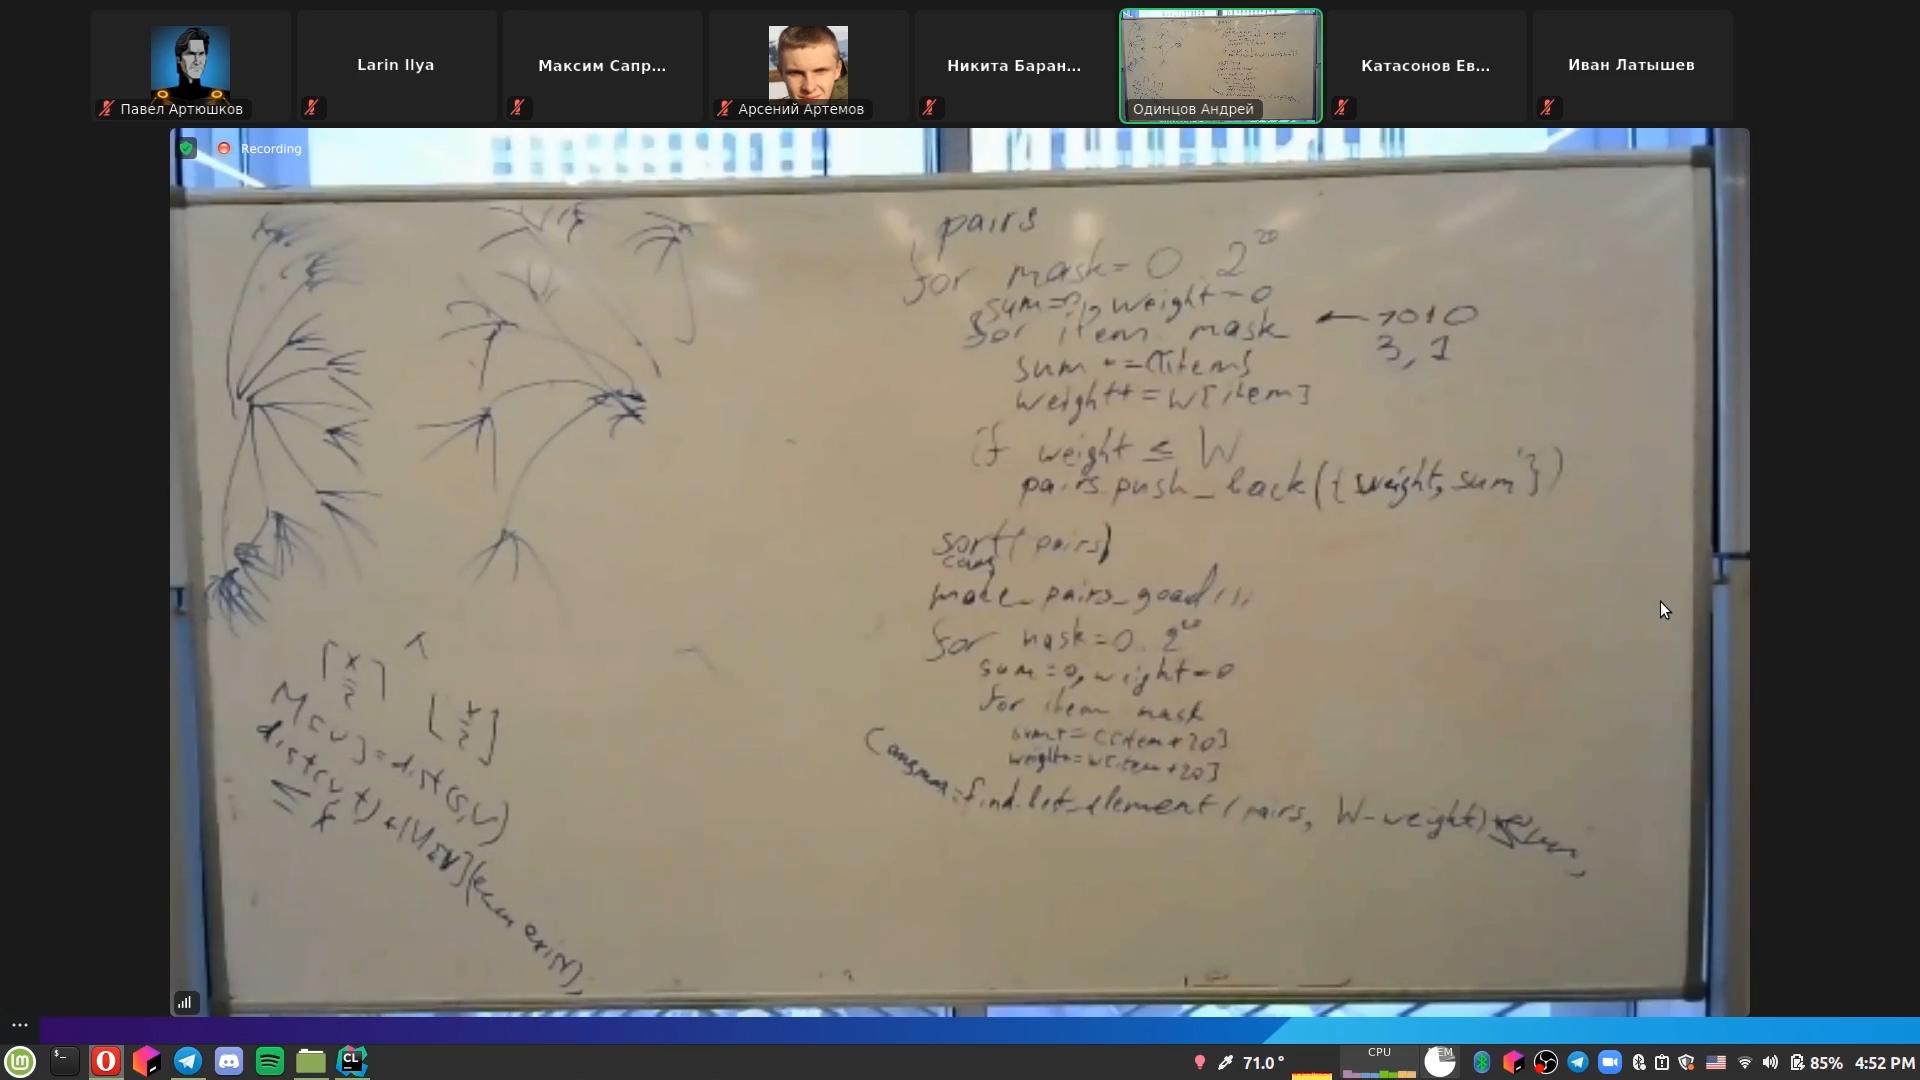 Павел Артюшков
Larin Ilya
Максим Сапр...
Арсений Артемов
Никита Баран...
Одинцов Андрей
Катасонов Ев...
Иван Латышев
Recording
pairs
for mask = 0 2^20
sum=0, weight=0
for item mask ← 1010
3, 1
sum += C[items]
weight+ = w[item]
if weight ≤ W
pairs.push_back({weight, sum})
sort(pairs)
make_pairs_good
for mask=0..2^20
sum=0, weight=0
for item mask
sum+=C[item+20]
weight+=w[item+20]
W-weight)
⌈x/2⌉
⌊x/2⌋
M[v]=dist(s,v)
dist(v,t)+M[v]
≤ x
...
CL
71.0°
CPU
MEM
85%
4:52 PM